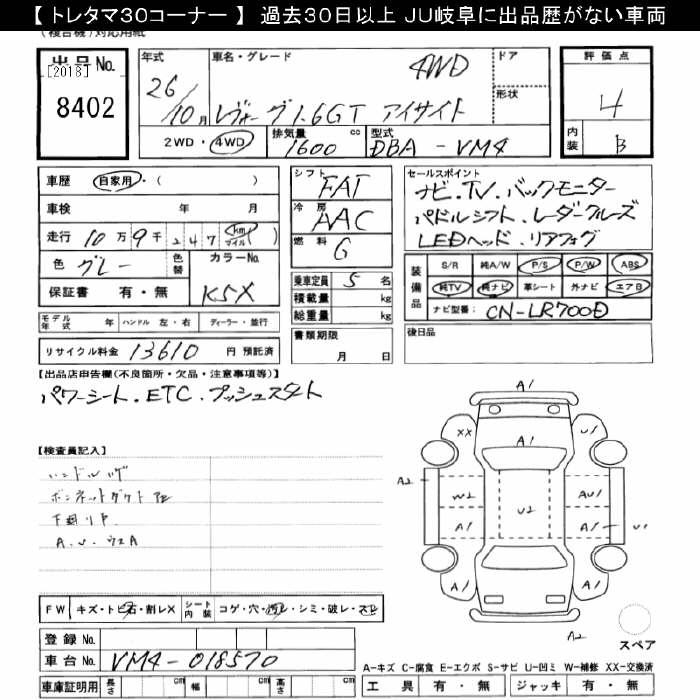 【 トレタマ30コーナー 】 過去30日以上 JU岐阜に出品歴がない車両
(複合機)対応用紙
出品No.
[2018]
8402
年式
26/10月
2WD・4WD
車名・グレード
4WD
レヴォーグ1.6GT アイサイト
ドア
形状
排気量 cc
1600
型式
DBA-VM4
評価点
4
内装
B
車歴 自家用・( )
車検 年 月
走行 10万9千247 km マイル( )
色 グレー
色替
カラーNo.
K5X
保証書 有・無
シフト
FAT
冷房
AAC
燃料
G
乗車定員 5名
積載量 kg
総重量 kg
書類期限
月 日
セールスポイント
ナビ.TV.バックモニター
パドルシフト.レーダークルーズ
LEDヘッド.リアフォグ
装備品
S/R 純A/W P/S P/W ABS
純TV 純ナビ 革シート 外ナビ エアB
ナビ型番: CN-LR700D
後日品
モデル年式 年 ハンドル 左・右 ディーラー・並行
リサイクル料金 13610 円 預託済
【出品店申告欄(不良箇所・欠品・注意事項等)】
パワーシート.ETC.プッシュスタート
【検査員記入】
ハンドルハゲ
A.U.ウスA
A1
XX
U1
A1
A2
W2
AU1
U2
A1
A1
U1
A1
A1
A2
スペア
FW キズ・トビ石・割レX
シート内装 コゲ・穴・汚レ・シミ・破レ・スレ
登録No.
車台No. VM4-018570
車庫証明用 長さ cm 幅 cm 高さ cm
A-キズ C-腐食 E-エクボ S-サビ U-凹ミ W-補修 XX-交換済
工具 有・無 ジャッキ 有・無